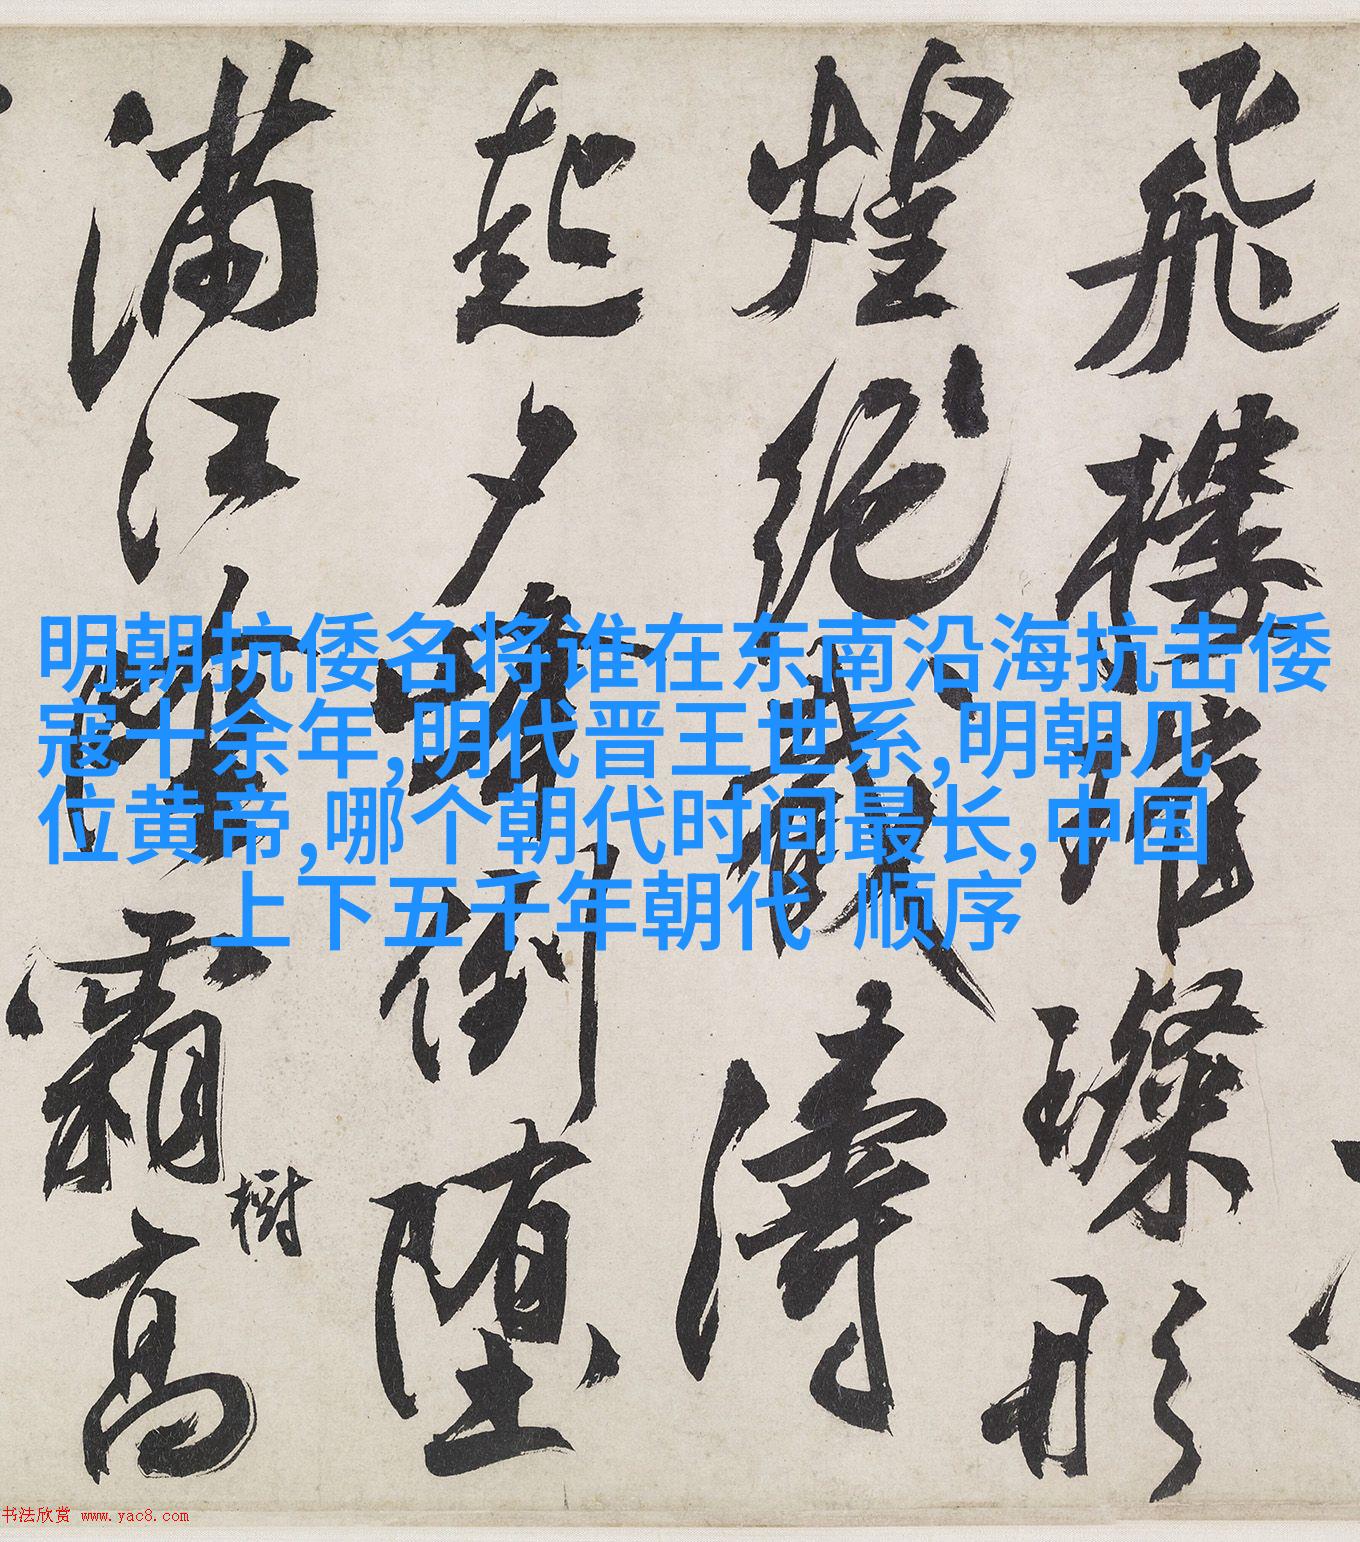 飛樓珠璨彤
煌絶巘濤
起夕峰倒堕
滿江唯霜高
樹
明朝抗倭名将谁在东南沿海抗击倭
寇十余年,明代晋王世系,明朝几
位黄帝,哪个朝代时间最长,中国
上下五千年朝代 顺序
书法欣赏 www.yac8.com